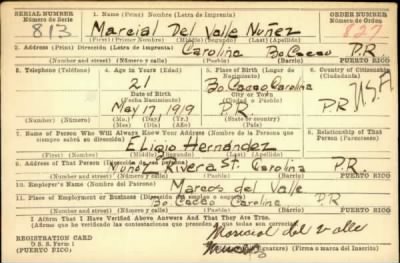 SERIAL NUMBER 1. Name (Print) (Nombre (Letra de Imprenta) ORDER NUMBER
Número de Serie Número de Orden
813 Marcial Del Valle Nuñez 827
(First) (Primer Nombre) (Middle) (Segundo) (Last) (Apellido)
2. Address (Print) (Dirección (Letra de Imprenta)
Carolina Bo Cacao P.R
(Number) (Número) (Number and street) (Número y calle) (Town) (Pueblo) (Barrio) PUERTO RICO
3. Telephone (Teléfono) 4. Age in Years (Edad) 5. Place of Birth (Lugar de Nacimiento) 6. Country of Citizenship (Ciudadanía)
21 Bo Cacao Carolina
Date of Birth City or Town
(Fecha Nacimiento) (Ciudad o Pueblo) P.R U.S.A
May 17 1919 P.R
(Number) (Número) (Mo.) (Day) (Yr.) State or country
(Mes) (Día) (Año) (Estado o país)
7. Name of Person Who Will Always Know Your Address (Nombre de la Persona que siempre sabrá su dirección) 8. Relationship of That Person (Parentesco)
Eligio Hernández
(First) (Nombre) (Middle) (Segundo) (Last) (Apellido)
9. Address of That Person (Dirección de esa persona)
Muñoz Rivera St. Carolina P.R
(Number) (Número) (Number and street) (Número y calle) (Town) (Pueblo) (Barrio) PUERTO RICO
10. Employer's Name (Nombre del Patrono)
Marcos del Valle
11. Place of Employment or Business (Dirección del empleo)
Bo Cacao Carolina P.R
(Number) (Número) (Number and street) (Número y calle) (Town) (Pueblo) (Barrio) PUERTO RICO
I Affirm That I Have Verified Above Answers And That They Are True.
(Afirmo que he verificado las contestaciones que anteceden y que son ciertas)
Marcial del Valle
REGISTRATION CARD
D S S. Form 1 (Signature) (Firma o marca del Inscrito)